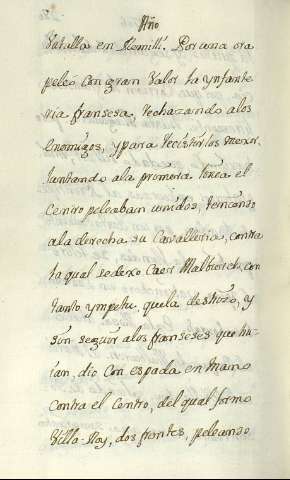 Año
Vatalla en Remilli. Por una ora
peleó con gran valor la ynfante
ria fransesa, rechazando a los
enemigos, y para recistirlos mexor
juntando a la primera linea el
centro peleaban unidos, teniendo
a la derecha su Cavalleria, contra
la qual se dexo Caer Malboroick, con
tanto ympetu, que la destrozo, y
sin seguir a los franseses que hu-
ian, dio con espada en mano
contra el Centro, del qual formo
Villa-Roy, dos frentes, peleando